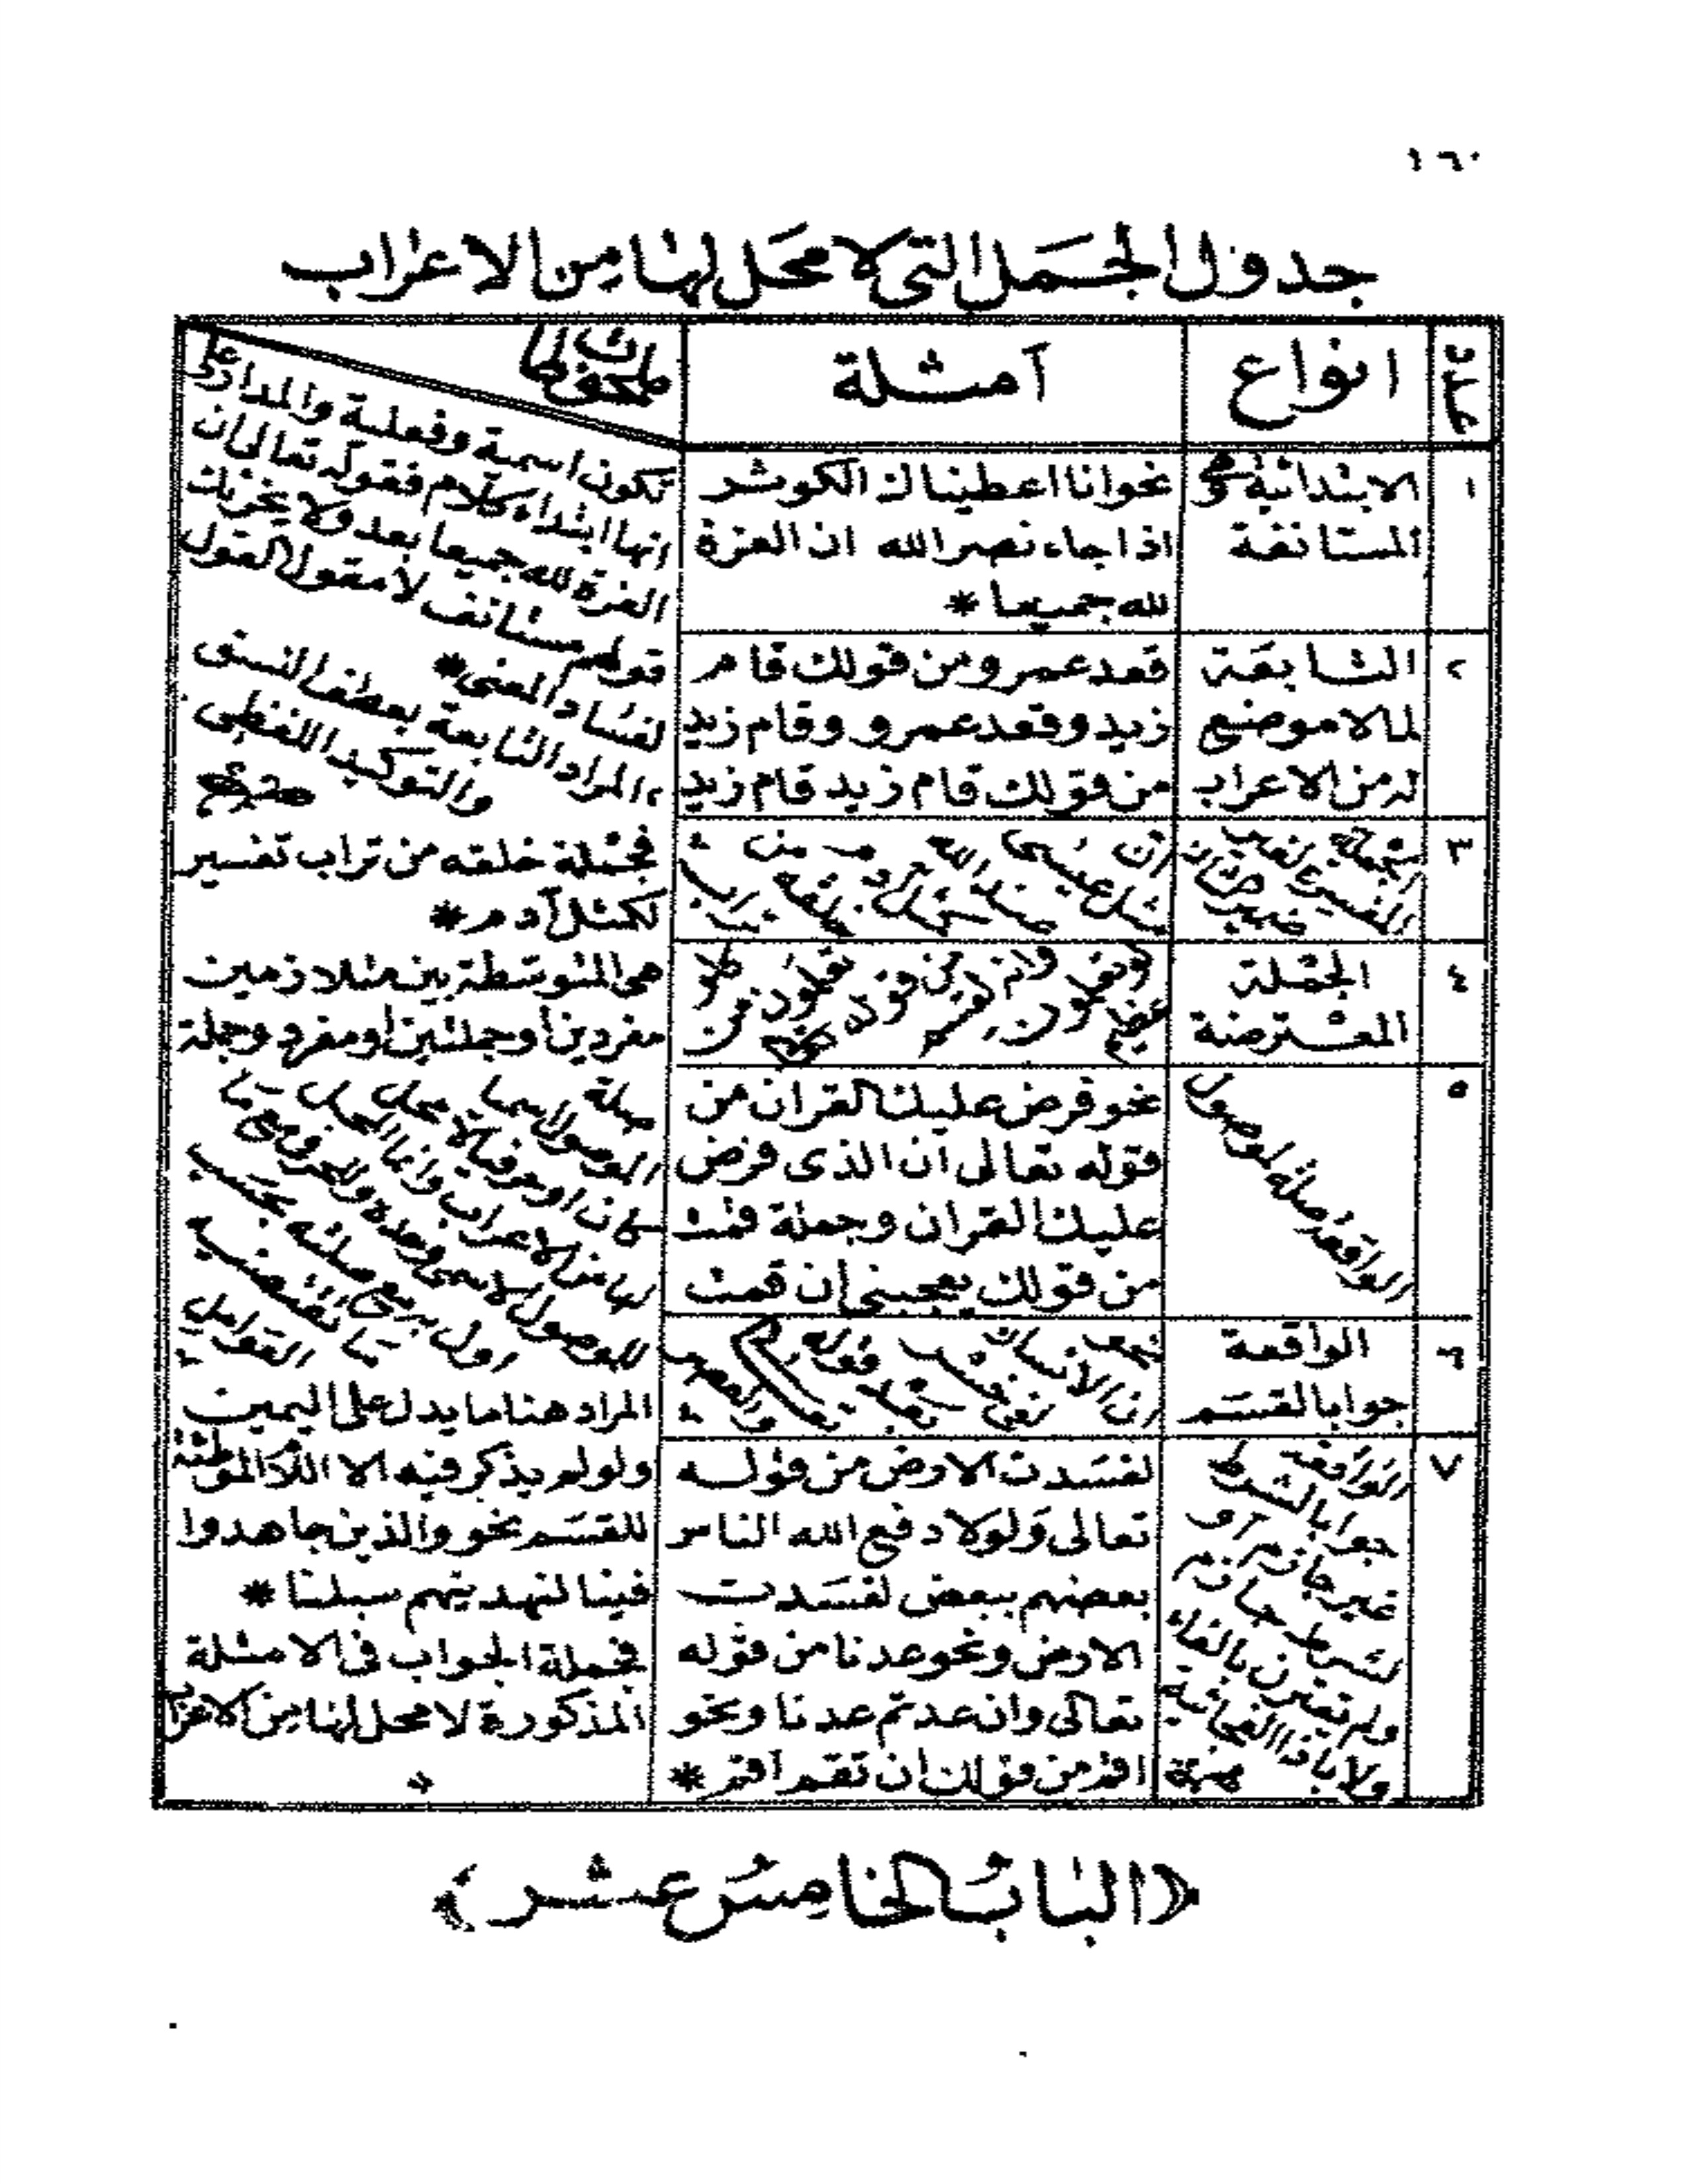 ١٦٠
جدول الجمل التى لا محل لها من الاعراب
عدد
انواع
امثلة
ملحوظات
١
الابتدائية
المستانفة
نحو انا اعطيناك الكوثر
اذا جاء نصر الله ان العزة
لله جميعا *
تكون اسمية وفعلية والمدار على
انها ابتداء كلام فقوله تعالى ان
العزة لله جميعا بعد ولا يحزنك
قولهم مستانف لا مقول القول
لفساد المعنى *
٢
التابعة
لما لا موضع
له من الاعراب
قعد عمرو من قولك قام
زيد وقعد عمرو وقام زيد
من قولك قام زيد قام زيد
المراد التابعة بعطف النسق
والتوكيد اللفظى
٣
ان مثل عيسى
عند الله
خلقه من تراب
فجملة خلقه من تراب تفسير
لكمثل آدم *
٤
الجملة
المعترضة
لو تعلمون
عظيم
هى المتوسطة بين متلازمين
مفردين او جملتين او مفرد وجملة
٥
الواقعة صلة لموصول
نحو فرض عليك القران من
قوله تعالى ان الذى فرض
عليك القران وجملة قمت
من قولك يعجبنى ان قمت
صلة
الموصول اسما
كان او حرفيا لا محل
لها من الاعراب وانما المحل
للموصول الاسمى وحده وللحرفى مع ما
اول به مع صلته بحسب
ما تقتضيه
العوامل
٦
الواقعة
جوابا لقسم
ان الانسان
لفى خسر
والعصر
المراد هنا ما يدل على اليمين
ولو لم يذكر فيه الا اللام الموطئة
للقسم نحو والذين جاهدوا
فينا لنهدينهم سبلنا *
٧
الواقعة
جوابا لشرط
غير جازم او
لشرط جازم
ولم تقترن بالفاء
ولا باذا الفجائية
لفسدت الارض من قوله
تعالى ولولا دفع الله الناس
بعضهم ببعض لفسدت
الارض ونحو عدنا من قوله
تعالى وان عدتم عدنا ونحو
اقم من قولك ان تقم اقم *
فجملة الجواب فى الامثلة
المذكورة لا محل لها من الاعراب
﴿ الباب الخامس عشر ﴾